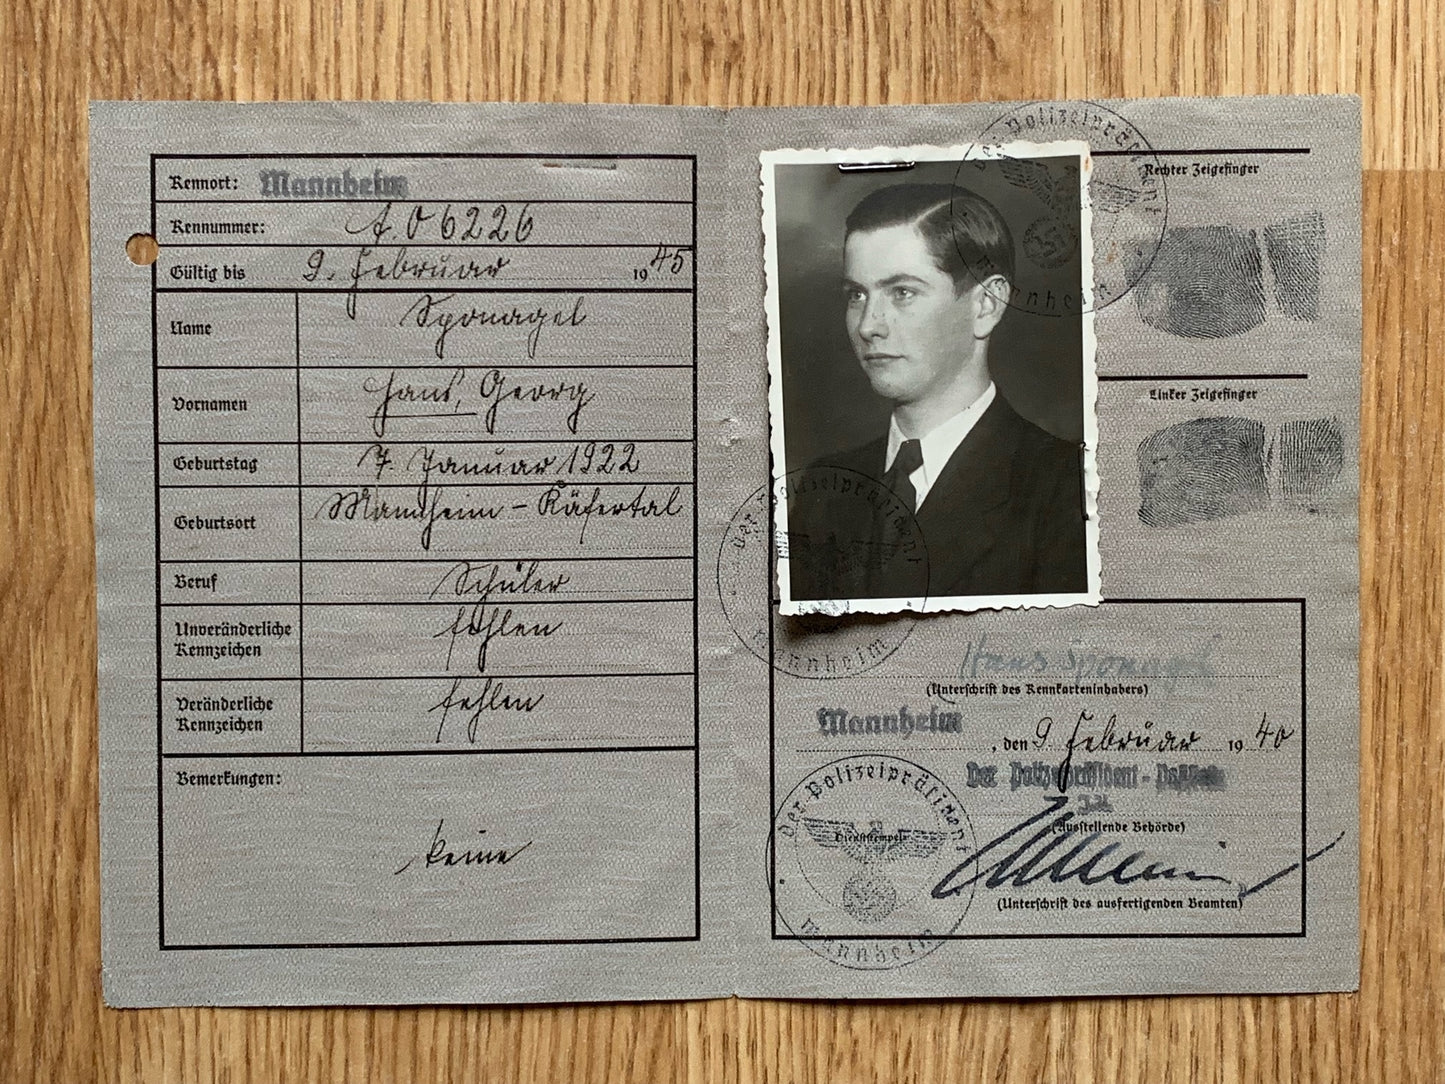 Kennort: Mannheim
Kennummer: A. 06226
Gültig bis 9. Februar 1945
Name Sponagel
Vornamen Hans, Georg
Geburtstag 7. Januar 1922
Geburtsort Mannheim-Käfertal
Beruf Schüler
Unveränderliche
Kennzeichen fehlen
Veränderliche
Kennzeichen fehlen
Bemerkungen:
keine
Rechter Zeigefinger
Linker Zeigefinger
Der Polizeipräsident
Mannheim
Der Polizeipräsident
Mannheim
Hans Sponagel
(Unterschrift des Kennkarteninhabers)
Mannheim, den 9. Februar 1940
Der Polizeipräsident -
(Ausstellende Behörde)
Der Polizeipräsident
Dienststempel
Mannheim
(Unterschrift des ausfertigenden Beamten)